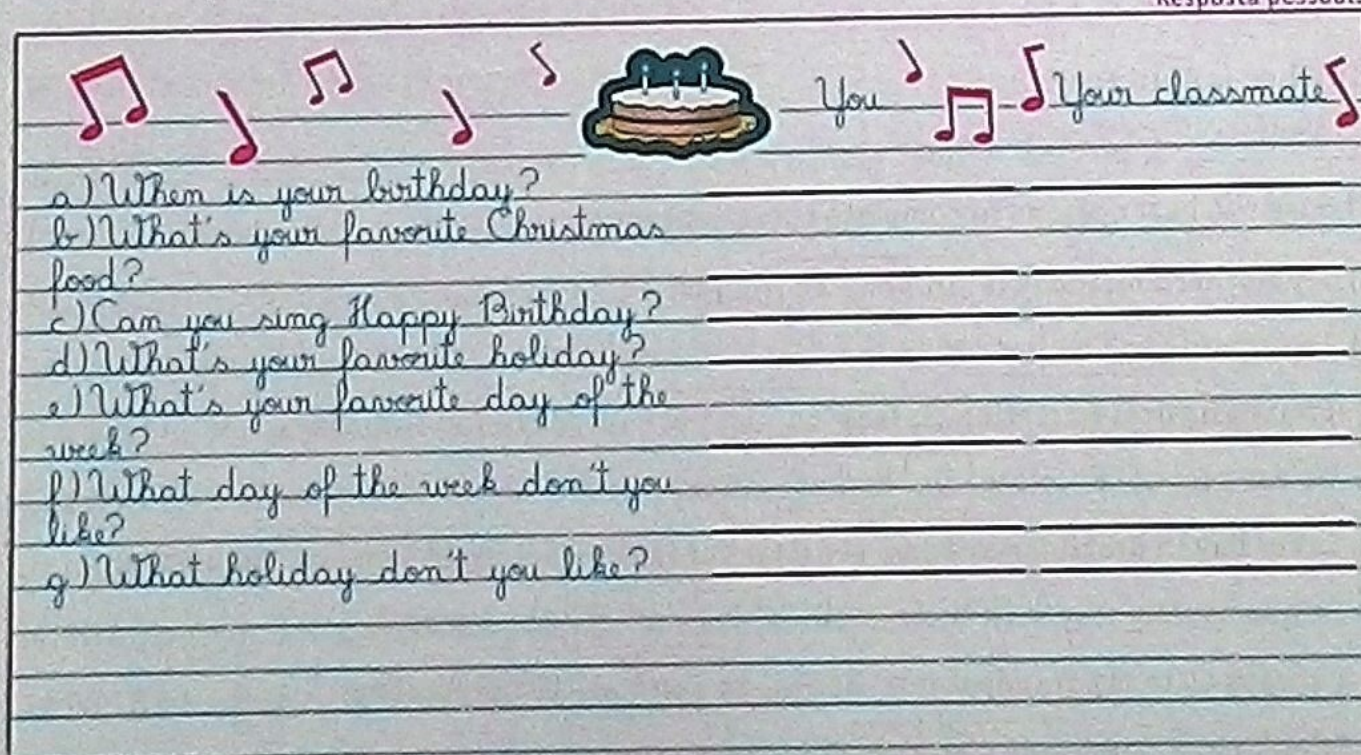 You
Your classmate
a) When is your birthday?
b) What's your favorite Christmas
food?
c) Can you sing Happy Birthday?
d) What's your favorite holiday?
e) What's your favorite day of the
week?
f) What day of the week don't you
like?
g) What holiday don't you like?